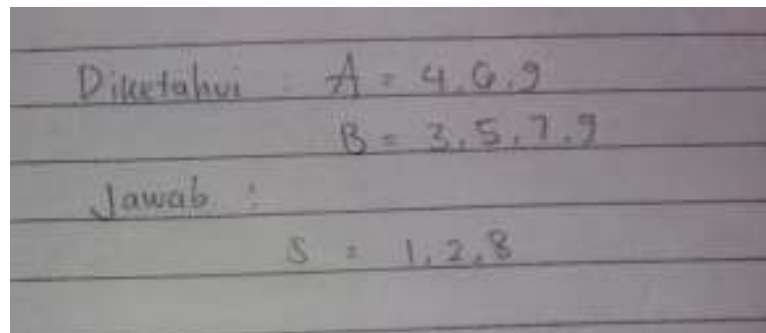 Diketahui : A = 4, 6, 9
B = 3, 5, 7, 9
Jawab :
S = 1, 2, 8